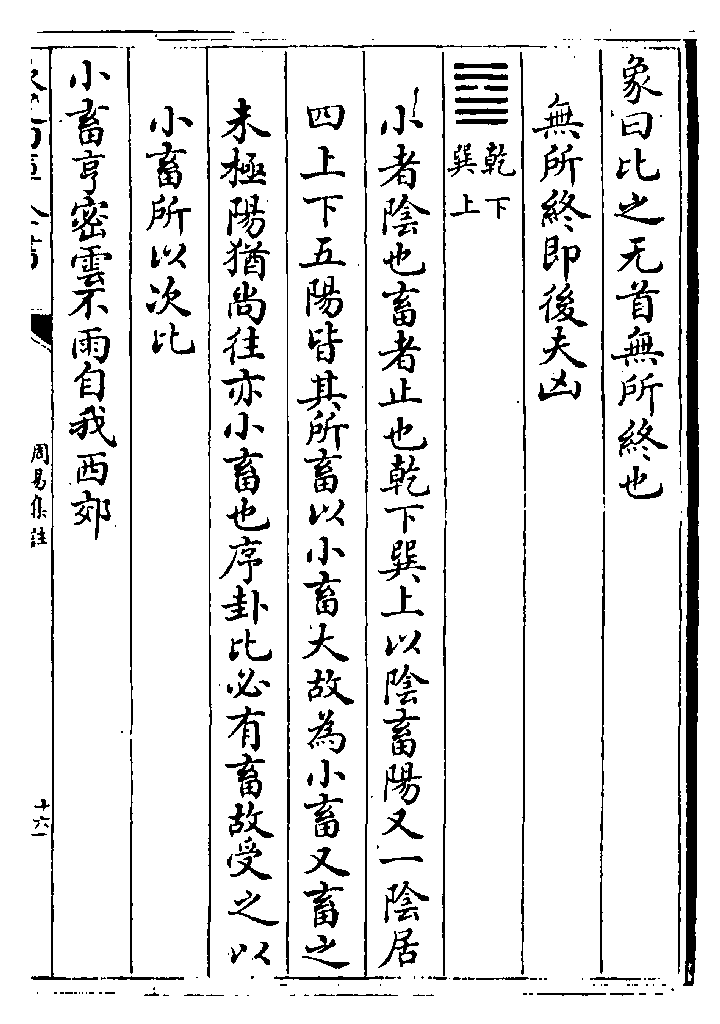 象曰比之无首無所終也
無所終即後夫凶
䷈ 乾下
巽上
小者陰也畜者止也乾下巽上以陰畜陽又一陰居
四上下五陽皆其所畜以小畜大故為小畜又畜之
未極陽猶尚往亦小畜也序卦比必有畜故受之以
小畜所以次比
小畜亨密雲不雨自我西郊
周易集註
十六